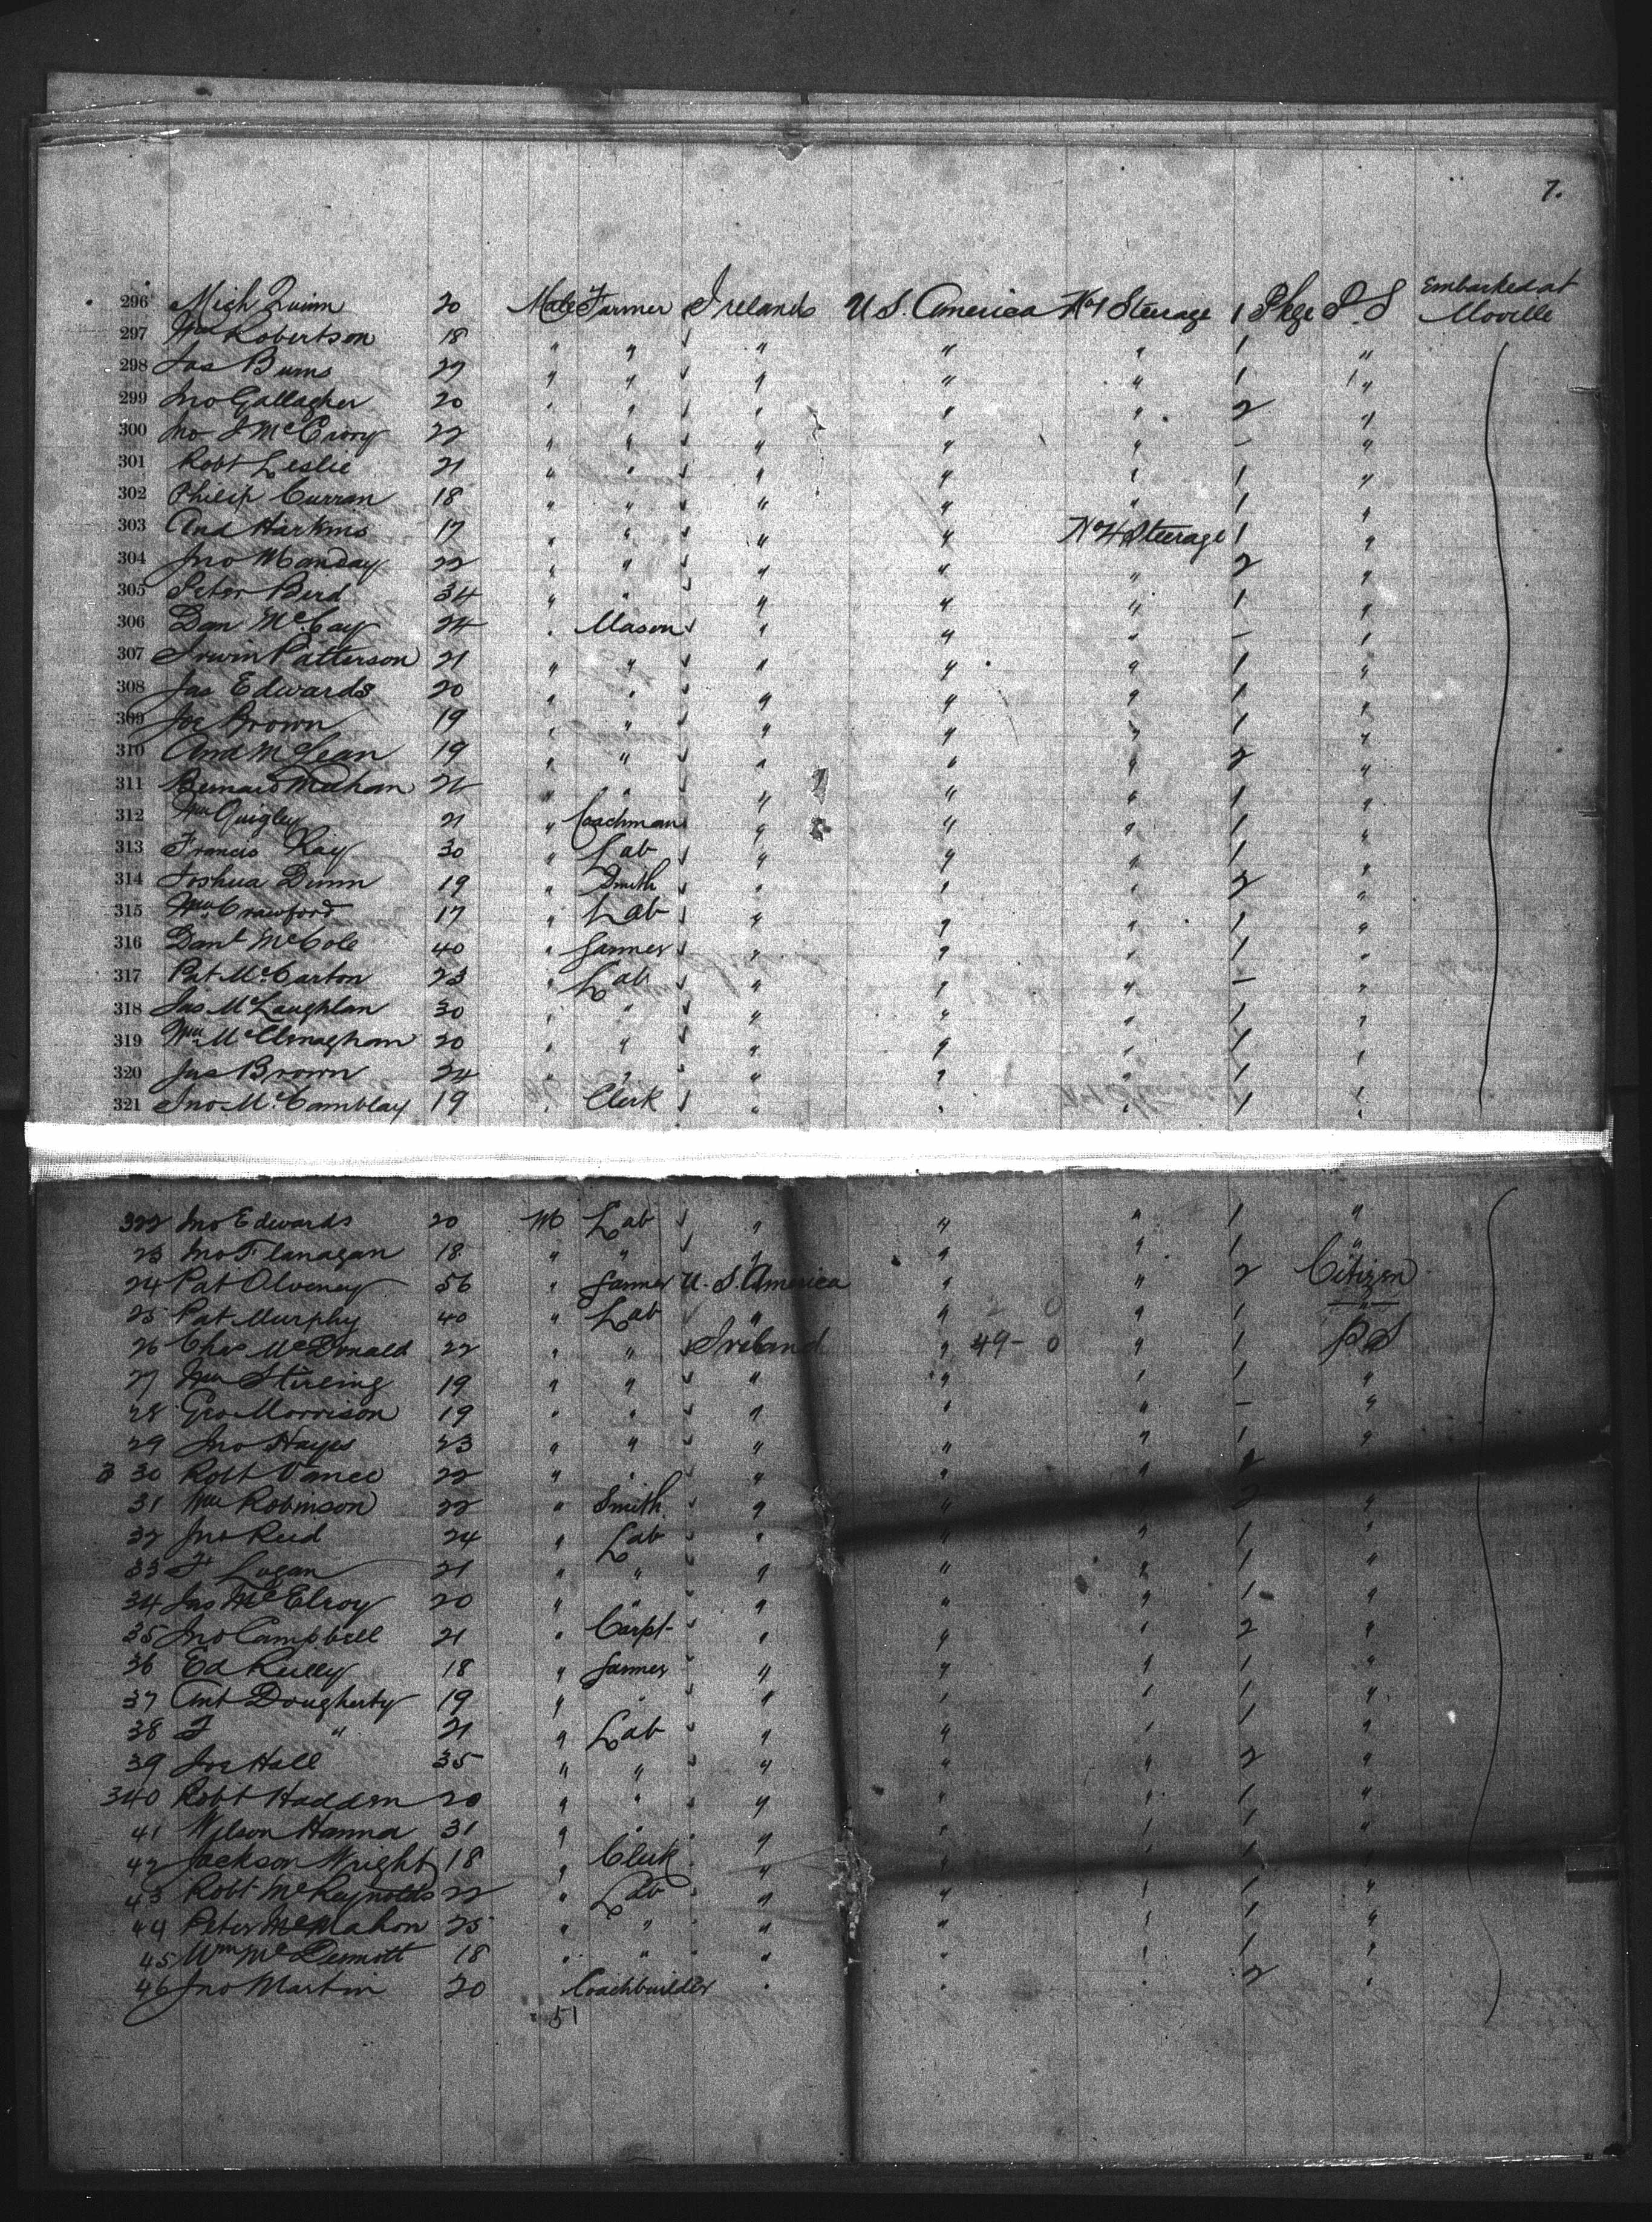 7.
296 Mich Quinn 20 Male Farmer Ireland U S. America No 1 Steerage 1 Pkge P. S Embarked at Moville
297 Wm Robertson 18 " " " " " 1 "
298 Jas Burns 22 " " " " " 1 "
299 Jno Gallagher 20 " " " " " 2 "
300 Jno J McCrory 22 " " " " " - "
301 Robt Leslie 21 " " " " " 1 "
302 Philip Curran 18 " " " " " 1 "
303 And Harkins 17 " " " " No 4 Steerage 1 "
304 Jno Manday 22 " " " " " 2 "
305 Peter Bird 34 " " " " " 1 "
306 Dan McCay 24 " Mason " " " - "
307 Irwin Patterson 21 " " " " " 1 "
308 Jas Edwards 20 " " " " " 1 "
309 Joe Brown 19 " " " " " 1 "
310 And McLean 19 " " " " " 2 "
311 Bernard Meehan " " " " " 1 "
312 Wm Quigley 21 " Coachman " " " 1 "
313 Francis Ray 30 " Lab " " " 1 "
314 Joshua Dunn 19 " Smith " " " 2 "
315 Wm Crawford 17 " Lab " " " 1 "
316 Danl McCole 40 " farmer " " " 1 "
317 Pat McCarton 23 " Lab " " " - "
318 Jas McLaughlan 30 " " " " " 1 "
319 Wm McClenaghan 20 " " " " " 1 "
320 Jas Brown 24 " " " " " 1 "
321 Jno McCamblay 19 " Clerk " " " 1 "
322 Jno Edwards 20 M Lab " " " 1 "
23 Jno Flanagan 18 " " " " " 1 "
24 Pat Olveney 56 " farmer U. S. America " " 2 Citizen
25 Pat Murphy 40 " Lab " " 2 0 " 1 "
26 Chas McDonald 22 " " Ireland " 49- 0 " 1 P S
27 Wm Stirling 19 " " " " " 1 "
28 Geo Morrison 19 " " " " " - "
29 Jno Hayes 23 " " " " " 1 "
330 Robt Vance 22 " " " " " 2
31 Wm Robinson 22 " Smith " " " 2 "
32 Jno Reid 24 " Lab " " " 1 "
33 F Logan 21 " " " " " 1 "
34 Jas McElroy 20 " " " " " 1 "
35 Jno Campbell 21 " Carpt- " " " 2 "
36 Ed Reilly 18 " farmer " " " 1 "
37 Ant Dougherty 19 " " " " " 1 "
38 F " 21 " Lab " " " 1 "
39 Jos Hall 35 " " " " " 2 "
340 Robt Hadden 20 " " " " " 1 "
41 Wilson Hanna 31 " " " " " 1 "
42 Jackson Wright 18 " Clerk " " " 1 "
43 Robt McReynolds 22 " Lab " " " 1 "
44 Peter McMahon 25 " " " " " 1 "
45 Wm McDermott 18 " " " " " 1 "
46 Jno Martin 20 Coachbuilder " " " 2 "
51